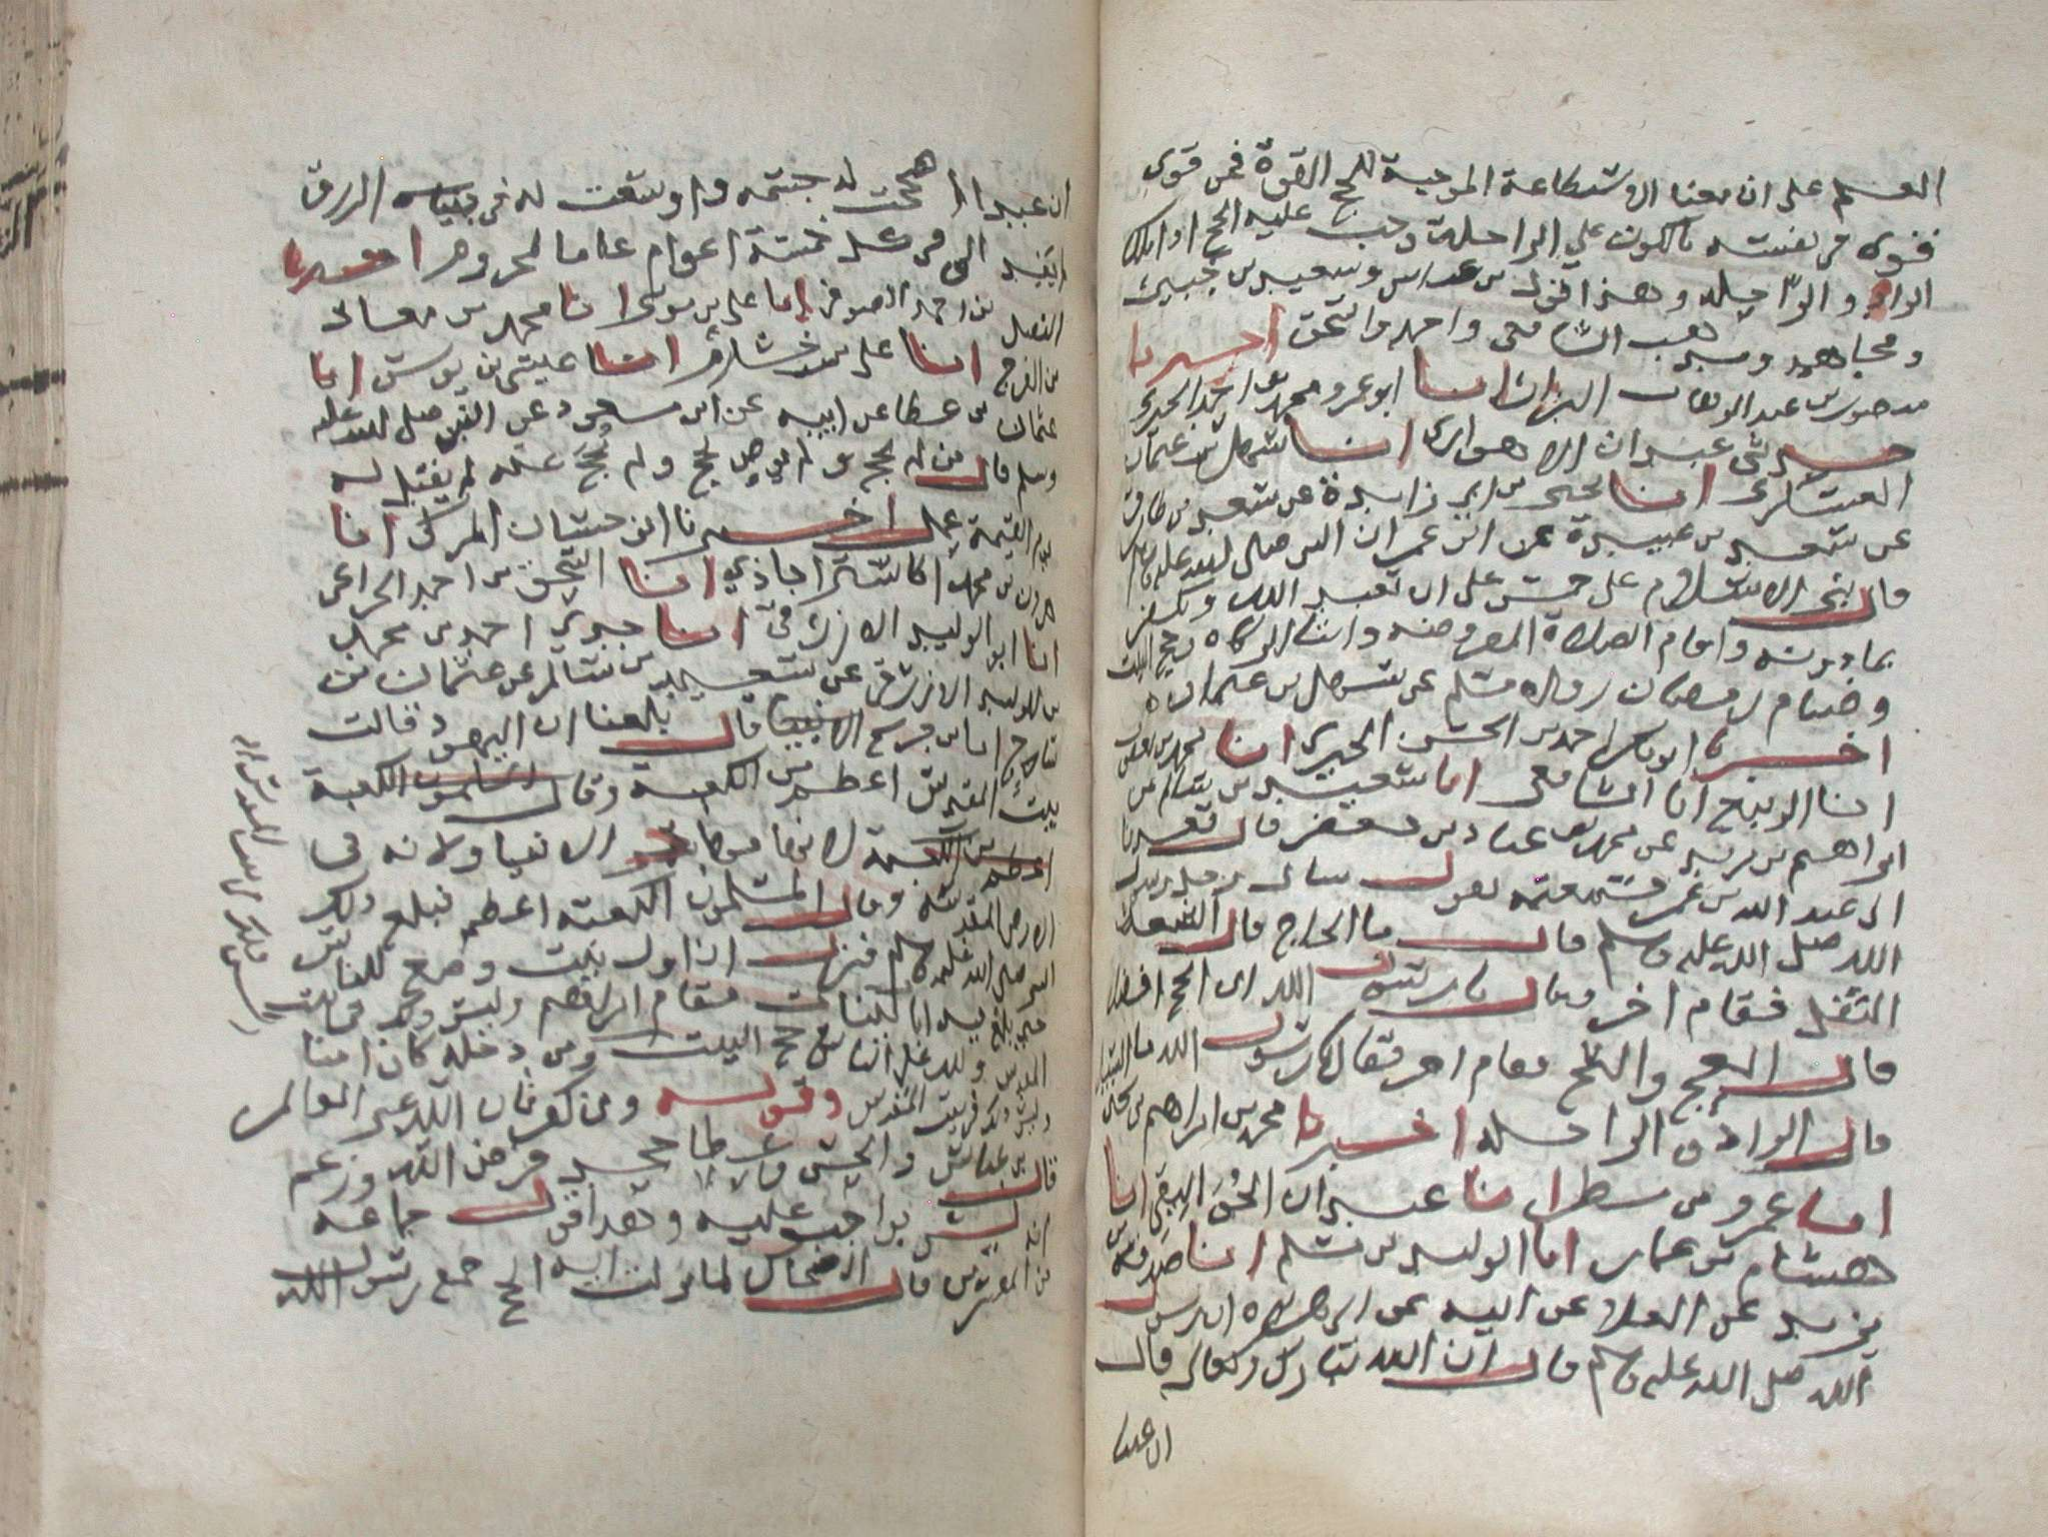 العلم على ان معنا الاستطاعة الموجبة للحج القوة فمن قوي
فقوى في نفسه بالكون على الراحلة وجب عليه الحج اذا ملك
الزاد والراحلة وهذا قول بن عباس وسعيد بن جبير
ومجاهد ومذهب الشافعي واحمد واسحق اخبرنا
منصور بن عبد الوهاب البزاز انا ابو عمرو محمد بن احمد الحيري
حدثني عبدان الاهوازي انا سهل بن عثمان
العسكري انا يحيى بن ابي زايدة عن سعد بن طارق
عن سعد بن عبيدة عن ابن عمر ان النبي صلى الله عليه وسلم
قال بني الاسلام على خمس على ان تعبد الله وتكفر
بما دونه واقام الصلاة المفروضة وايتا الزكاة وحج البيت
وصيام رمضان رواه مسلم عن سهل بن عثمان
اخبرنا ابو بكر احمد بن الحسن الحيري انا محمد بن يعقوب
انا الربيع انا الشافعي انا سعيد بن سالم عن
ابراهيم بن يزيد عن محمد بن عباد بن جعفر قال قعدنا
الى عبد الله بن عمر فسمعته يقول سال رجل رسول
الله صلى الله عليه وسلم قال ما الحاج قال الشعث
التفل فقام اخر وقال يا رسول الله اي الحج افضل
قال العج والثج فقام اخر فقال يا رسول الله ما السبيل
قال الزاد والراحلة اخبرنا محمد بن ابراهيم بن يحيى
انا عمرو بن مطر انا عبد الله الرقي انا
هشام بن عمار انا الوليد بن مسلم انا صدقة بن
يزيد عن العلا عن ابيه عن ابي هريرة ان رسول
الله صلى الله عليه وسلم قال ان الله تبارك وتعالى قال
ان عبدا
ان عبدا اصححت له جسمه واوسعت له في الرزق
لم يفد الي في كل خمسة اعوام عاما لمحروم اخبرنا
الفضل بن احمد الصوفي انا علي بن موسى انا محمد بن معاذ
بن الفرج انا علي بن خشرم انا عيسى بن يونس انا
عثمان بن عطا عن ابيه عن ابن مسعود عن النبي صلى الله عليه
وسلم قال من لم يحج ولم يوص بحج ولم يحج عنه لم يقبل له
يوم القيمة عمل اخبرنا ابن حسان المزكي انا
هرون بن محمد الاستراباذي انا اسحق بن احمد الخزاعي
انا ابو الوليد الازرقي انا جدي احمد بن محمد
بن الوليد الازرقي عن سعيد بن سالم عن عثمان بن
ساج انا بن جريج قال بلغنا ان اليهود قالت
بيت المقدس اعظم من الكعبة وقال الكعبة
اعظم من الكعبة لانها مهاجر الانبيا ولانه في
الارض المقدسة وقال المسلمون الكعبة اعظم فبلغ ذلك
النبي صلى الله عليه وسلم فنزلت ان اول بيت وضع للناس
حتى بلغ فيه ايات بينات مقام ابراهيم وليس ذلك في بيت
المقدس ولله على الناس حج البيت ومن دخله كان امنا
وليس ذلك في بيت المقدس وقوله ومن كفر فان الله غني عن العالمين
قال بن عباس والحسن وعطا جحد فرض الله وزعم
انه ليس بواجب عليه وهذا قول جماعة
من المفسرين قال الضحاك لما نزلت اية الحج جمع رسول الله